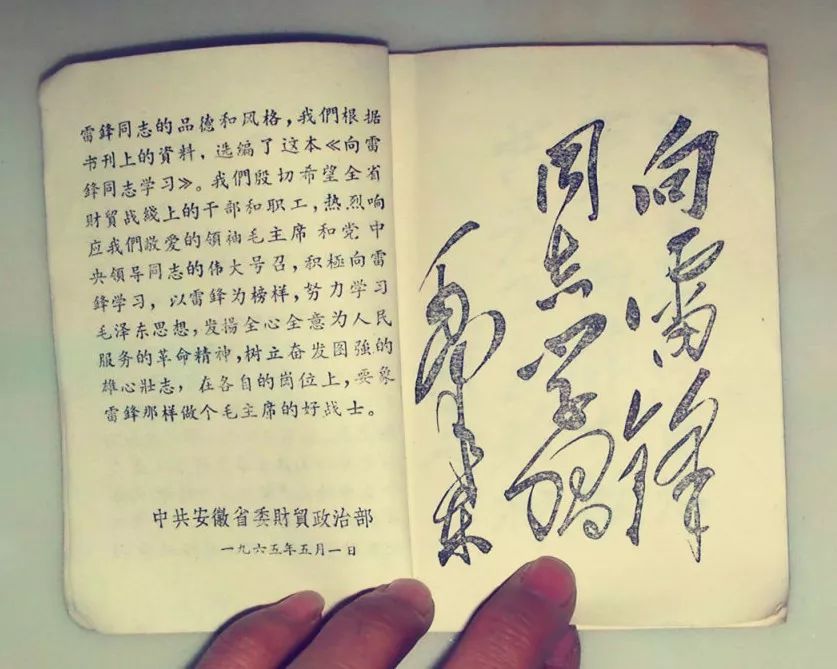 雷鋒同志的品德和风格，我們根据
书刊上的資料，选編了这本《向雷
鋒同志学习》。我們殷切希望全省
財貿战綫上的干部和职工，热烈响
应我們敬爱的領袖毛主席和党中
央領导同志的伟大号召，积極向雷
鋒学习，以雷鋒为榜样，努力学习
毛泽东思想，发揚全心全意为人民
服务的革命精神，树立奋发图強的
雄心壯志，在各自的岗位上，要象
雷鋒那样做个毛主席的好战士。
中共安徽省委財貿政治部
一九六五年五月一日
向雷锋
同志学習
毛泽東